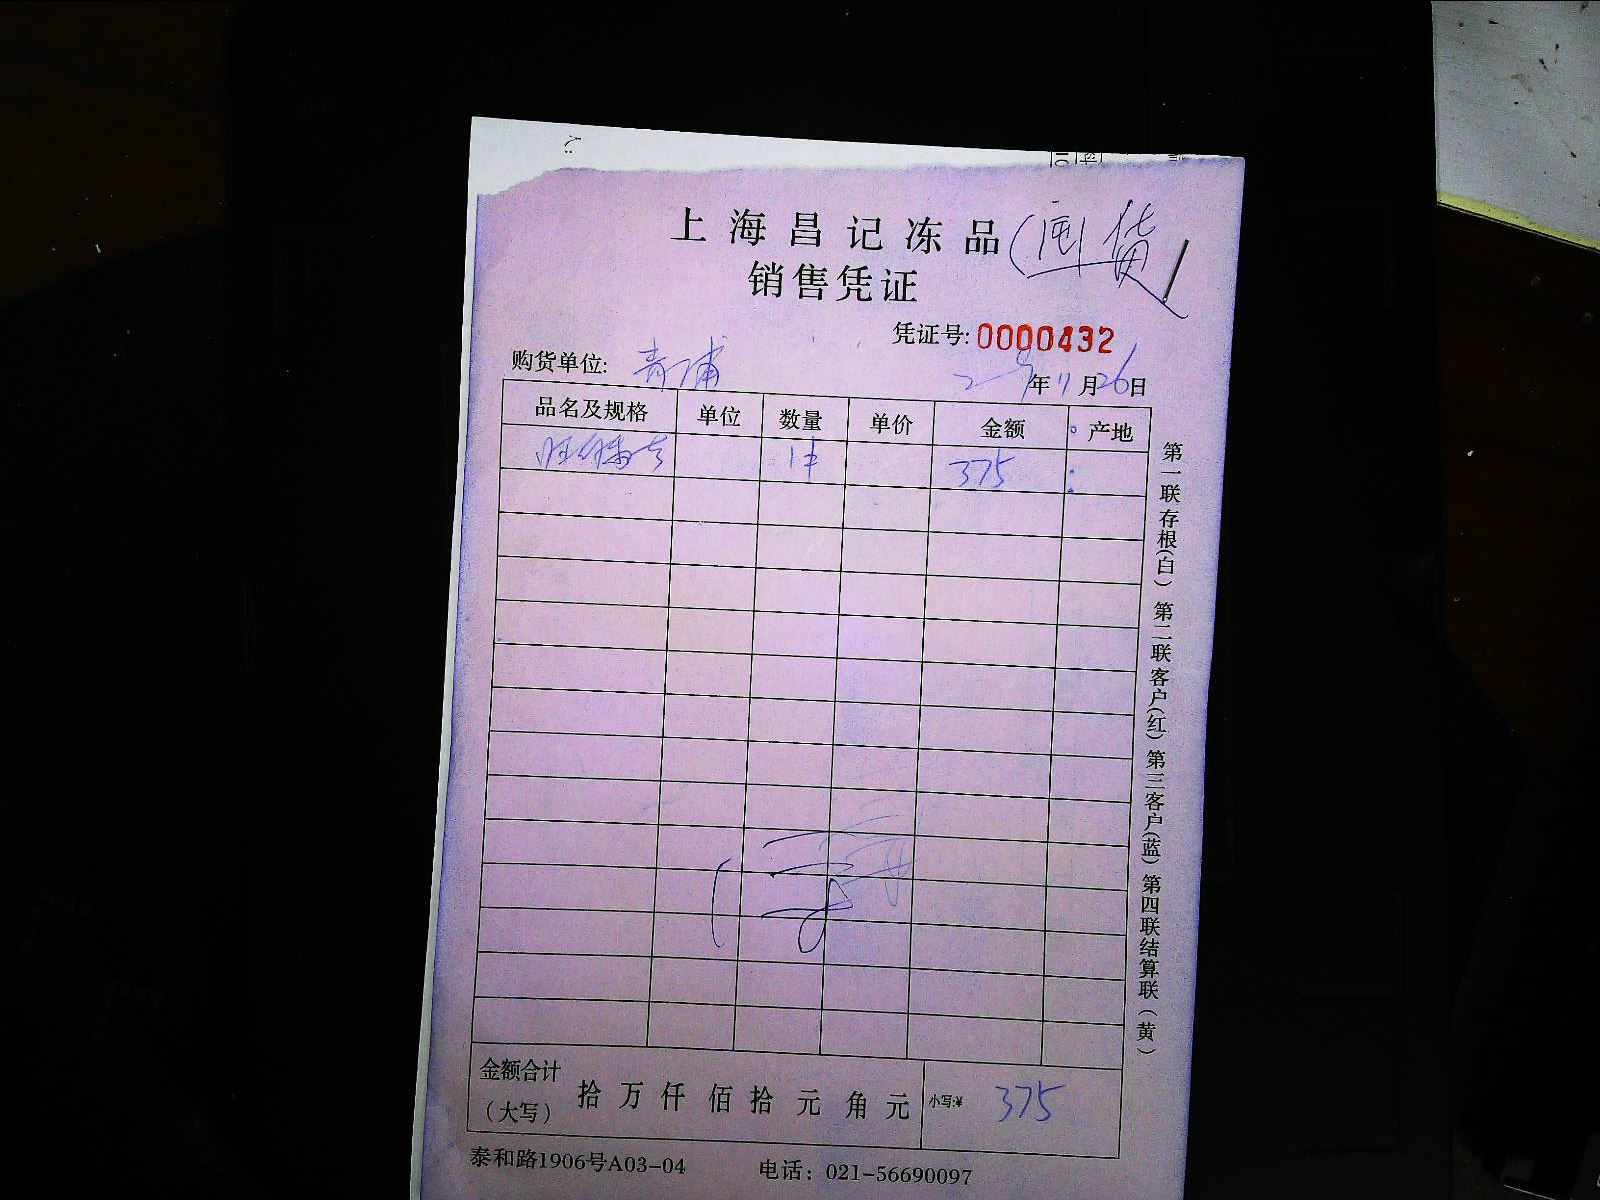 上海昌记冻品
销售凭证
凭证号: 0000432
购货单位: 青浦
年 11 月 26 日
品名及规格 单位 数量 单价 金额 产地
1件 375
金额合计（大写） 拾 万 仟 佰 拾 元 角 元 小写:¥ 375
泰和路1906号A03-04 电话：021-56690097
第一联存根(白) 第二联客户(红) 第三客户(蓝) 第四联结算联(黄)